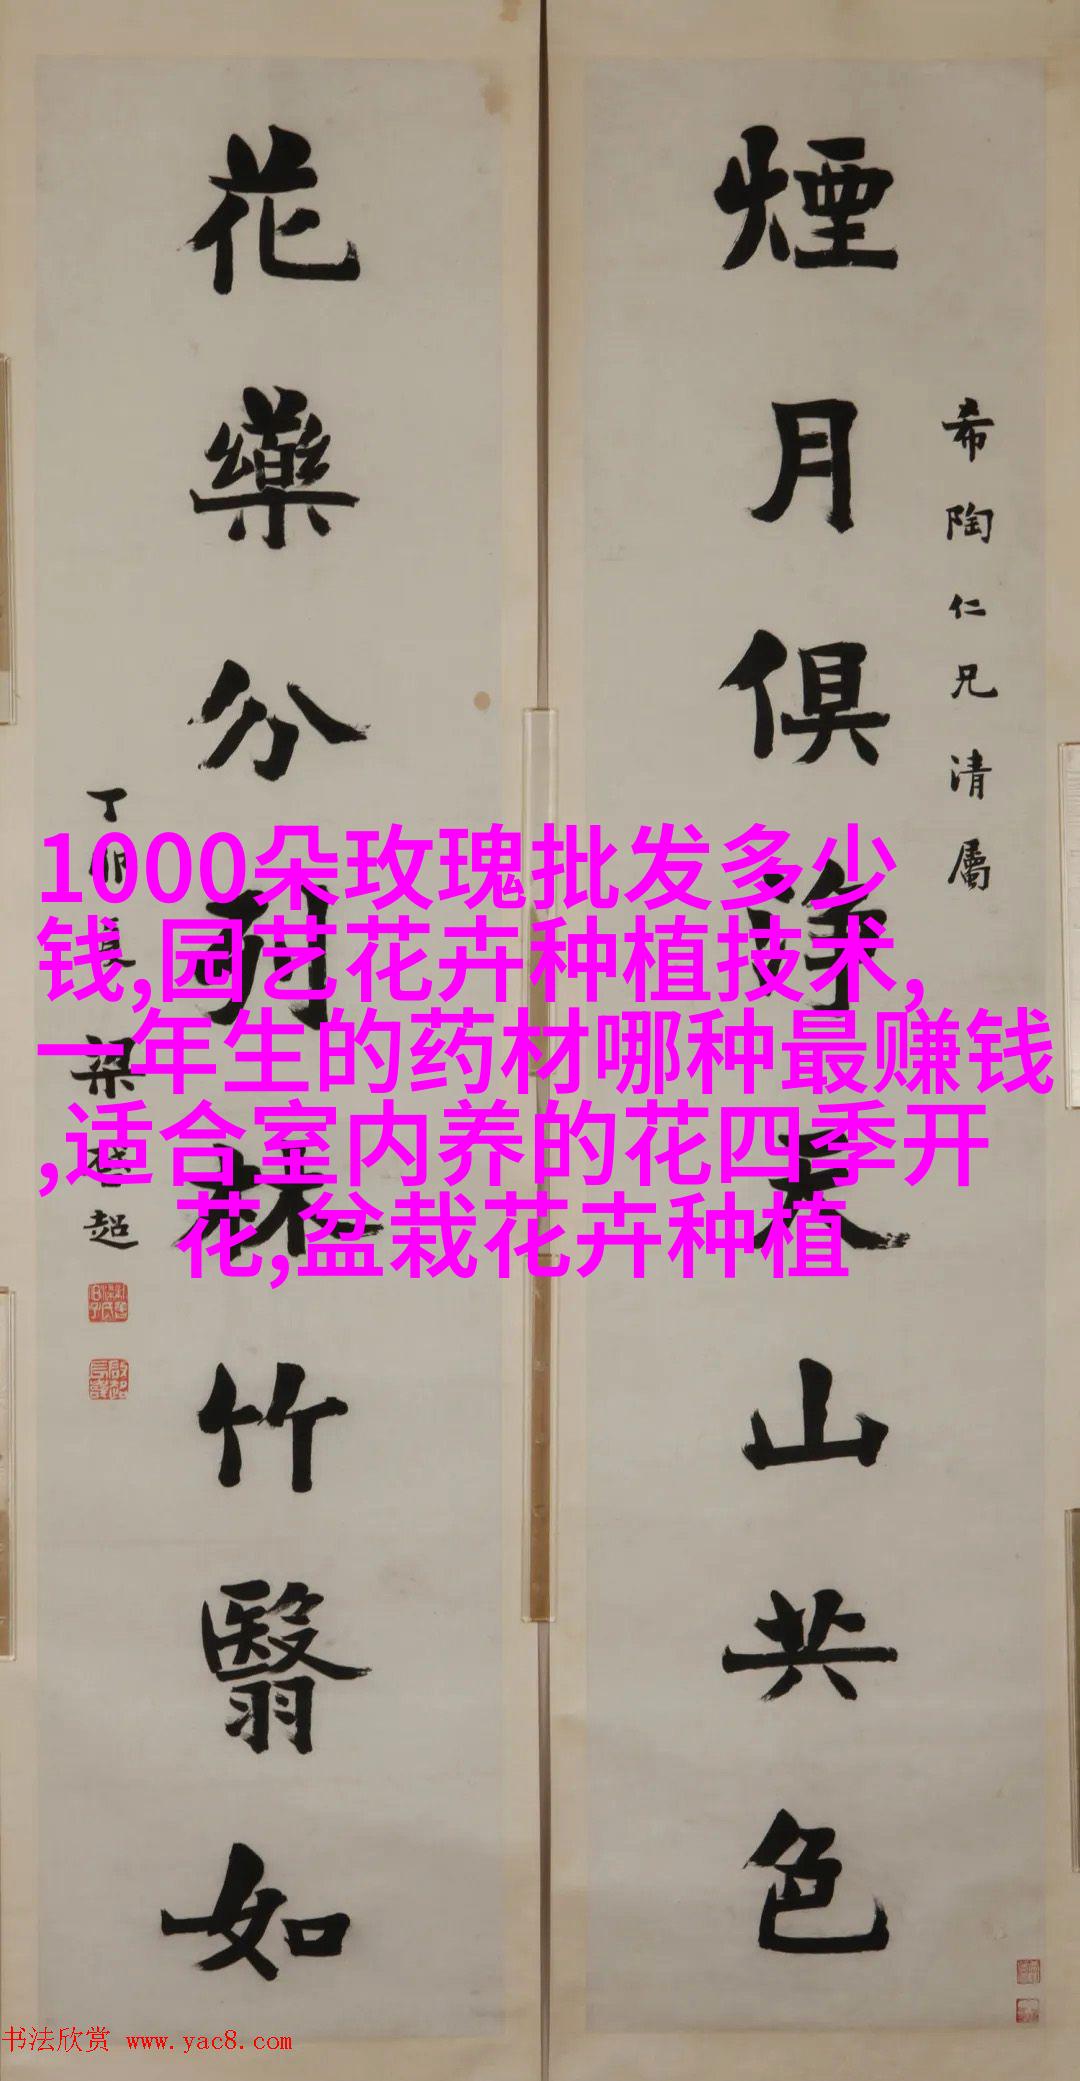 煙月俱淨天山共色
希陶仁兄清屬
花藥分列林竹翳如
丁卯
梁啓超
1000朵玫瑰批发多少
钱,园艺花卉种植技术,
一年生的药材哪种最赚钱
,适合室内养的花四季开
花,盆栽花卉种植
书法欣赏 www.yac8.com